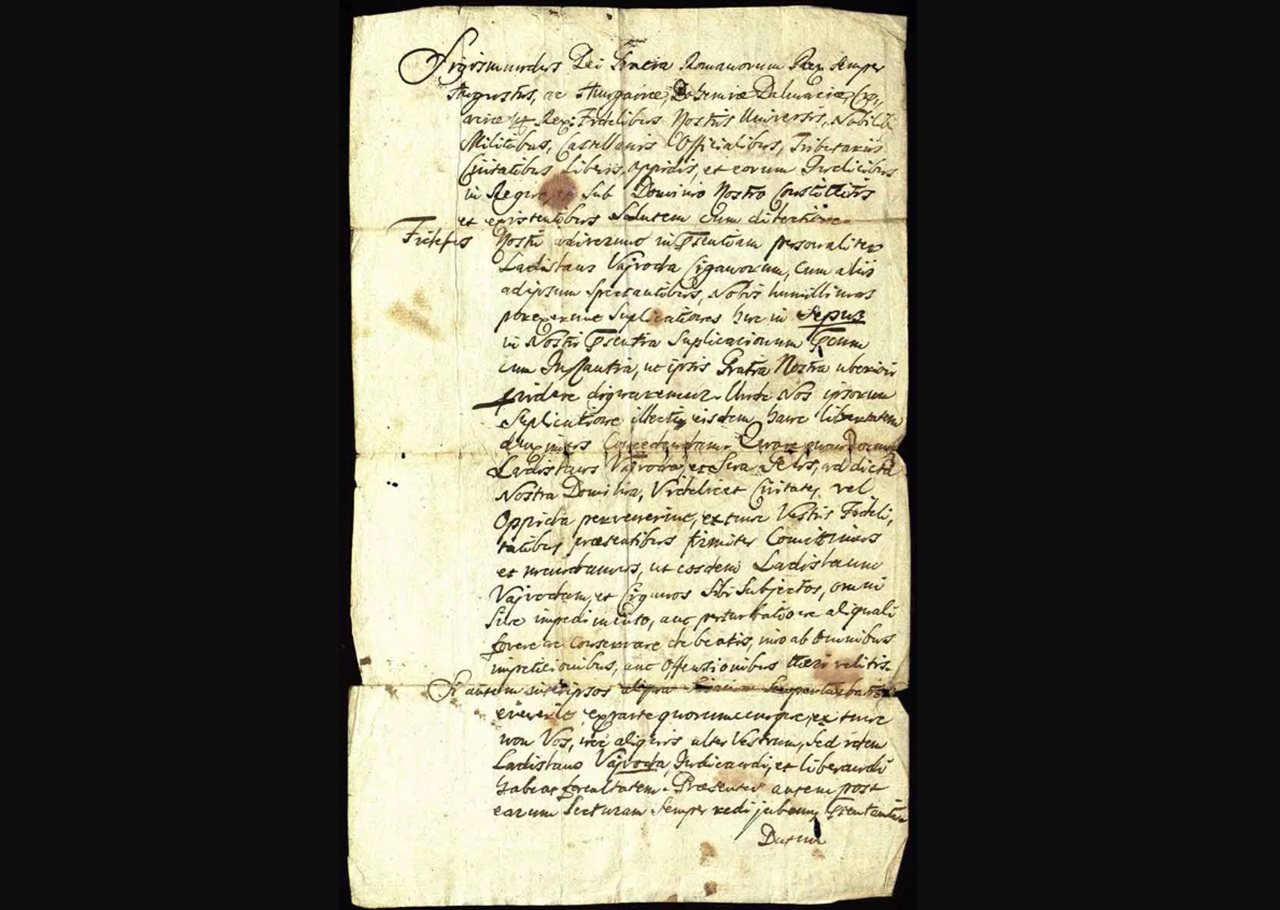 Sigismundus Dei Gracia Romanorum Rex semper
Augustus, ac Hungariae, Bohemiae Dalmaciae, Cro„
Rex: Fidelibus Nostris Universis, Nobilib
Militibus, Castellanis Officialibus, Tributariis
Civitatibus Liberis, oppidis, et eorum Judicibus
in Regno et Sub Dominio Nostro Constitutis
et existentibus Salutem cum dilectione.
Fideles Nostri adiverunt in Psentiam personaliter
Ladislaus Vajvoda Ciganorum, cum aliis
ad ipsum Spectantibus, Nobis humillimas
porexerunt Suplicationes huc in Sepus
in Nostri Psentia Suplicacionum
cum Instantia, ut ipsis Gratia Nostra uberiori
pvidere dignaremur. Unde Nos ipsorum
Suplicatione illecti eisdem hanc libertatem
duximus Concedendam. Quare
Ladislaus Vajvoda, et Sua Gens, ad dicta
Nostra Dominia, Videlicet Civitates vel
Oppida pervenerint, extunc Vestris Fideli„
tatibus praesentibus firmiter Comittimus
et mandamus, ut eosdem Ladislaum
Vajvodam, et Ciganos Sibi Subjectos, omni
Sine impedimento, aut perturbatione aliquali
fovere ac conservare debeatis, imo ab Omnibus
impeticionibus, aut Offensionibus tueri velitis.
Si autem inter ipsos aliqua Seu perturbatio
evenerit, ex parte quorumcunque, extunc
non Vos, nec aliquis alter Vestrum, Sed idem
Ladislaus Vajvoda, Judicandi, et liberandi
habeat facultatem. Praesentes autem post
earum Lecturam Semper redi jubemus Psentanti
Datum